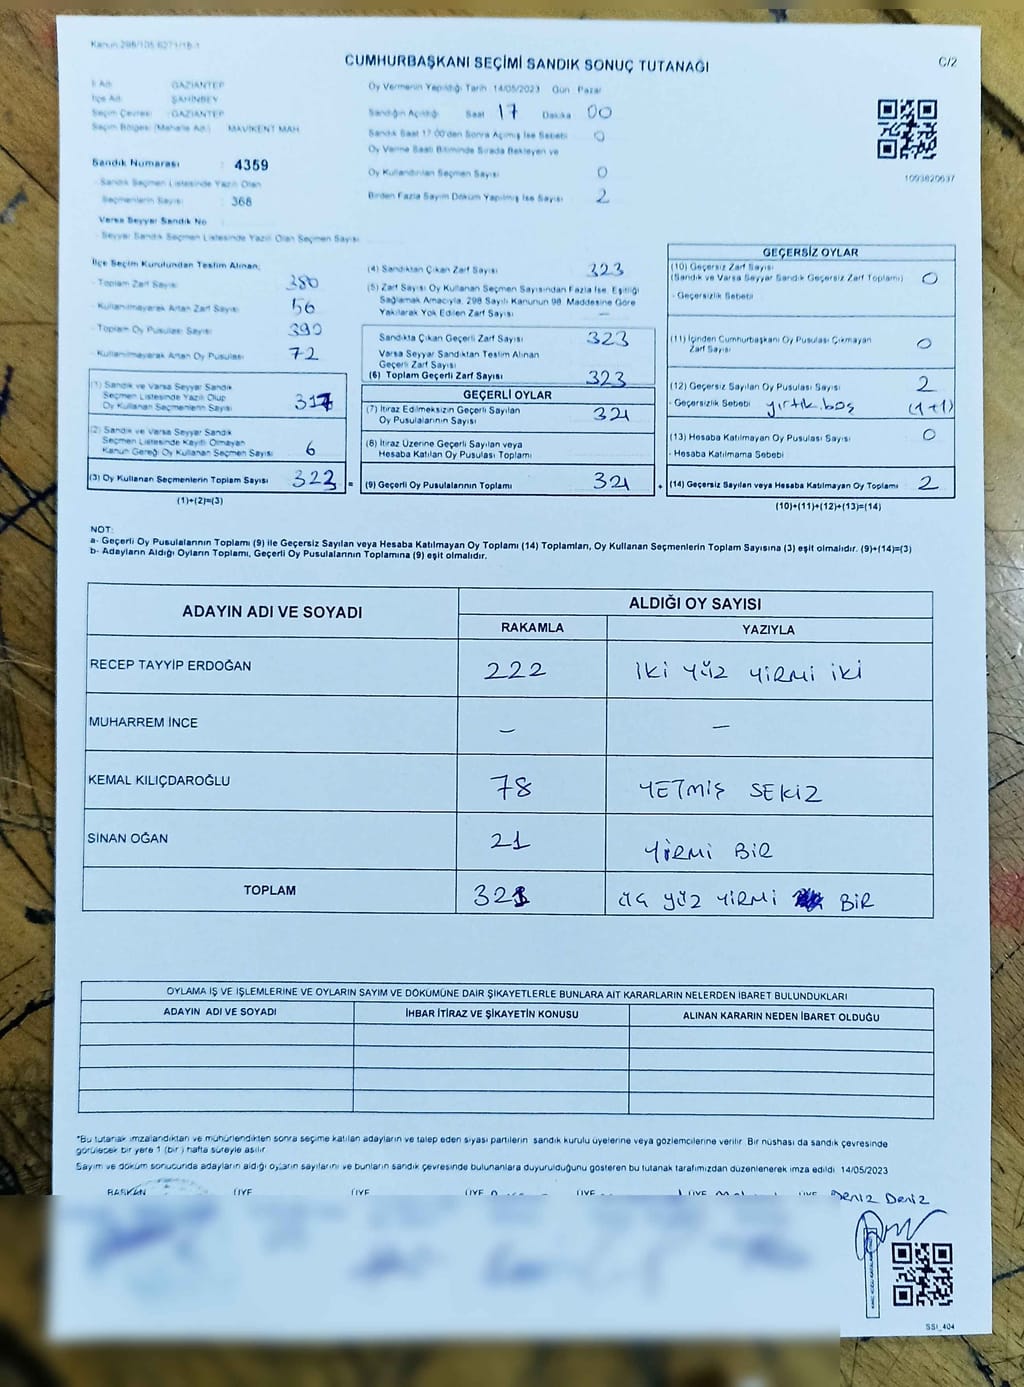 Kanun 298/105 6271/18-1
CUMHURBAŞKANI SEÇİMİ SANDIK SONUÇ TUTANAĞI
C/2
İl Adı : GAZİANTEP
İlçe Adı : ŞAHİNBEY
Seçim Çevresi : GAZİANTEP
Seçim Bölgesi (Mahalle Adı) MAVİKENT MAH
Sandık Numarası : 4359
- Sandık Seçmen Listesinde Yazılı Olan
Seçmenlerin Sayısı : 368
Varsa Seyyar Sandık No
- Seyyar Sandık Seçmen Listesinde Yazılı Olan Seçmen Sayısı
Oy Vermenin Yapıldığı Tarih 14/05/2023 Gün Pazar
Sandığın Açıldığı Saat 17 Dakika 00
Sandık Saat 17:00'den Sonra Açılmış İse Sebebi 0
Oy Verme Saati Bitiminde Sırada Bekleyen ve
Oy Kullandırılan Seçmen Sayısı 0
Birden Fazla Sayım Döküm Yapılmış İse Sayısı 2
1093820637
İlçe Seçim Kurulundan Teslim Alınan;
- Toplam Zarf Sayısı 380
- Kullanılmayarak Artan Zarf Sayısı 56
- Toplam Oy Pusulası Sayısı 390
- Kullanılmayarak Artan Oy Pusulası 72
(1) Sandık ve Varsa Seyyar Sandık
Seçmen Listesinde Yazılı Olup
Oy Kullanan Seçmenlerin Sayısı 317
(2) Sandık ve Varsa Seyyar Sandık
Seçmen Listesinde Kayıtlı Olmayan
Kanun Gereği Oy Kullanan Seçmen Sayısı 6
(3) Oy Kullanan Seçmenlerin Toplam Sayısı 323 =
(1)+(2)=(3)
(4) Sandıktan Çıkan Zarf Sayısı 323
(5) Zarf Sayısı Oy Kullanan Seçmen Sayısından Fazla İse, Eşitliği
Sağlamak Amacıyla, 298 Sayılı Kanunun 98. Maddesine Göre
Yakılarak Yok Edilen Zarf Sayısı —
Sandıkta Çıkan Geçerli Zarf Sayısı 323
Varsa Seyyar Sandıktan Teslim Alınan
Geçerli Zarf Sayısı
(6) Toplam Geçerli Zarf Sayısı 323
GEÇERLİ OYLAR
(7) İtiraz Edilmeksizin Geçerli Sayılan
Oy Pusulalarının Sayısı 321
(8) İtiraz Üzerine Geçerli Sayılan veya
Hesaba Katılan Oy Pusulası Toplamı
(9) Geçerli Oy Pusulalarının Toplamı 321 +
GEÇERSİZ OYLAR
(10) Geçersiz Zarf Sayısı
(Sandık ve Varsa Seyyar Sandık Geçersiz Zarf Toplamı) 0
- Geçersizlik Sebebi
(11) İçinden Cumhurbaşkanı Oy Pusulası Çıkmayan
Zarf Sayısı 0
(12) Geçersiz Sayılan Oy Pusulası Sayısı 2
- Geçersizlik Sebebi yırtık. boş (1+1)
(13) Hesaba Katılmayan Oy Pusulası Sayısı 0
- Hesaba Katılmama Sebebi
(14) Geçersiz Sayılan veya Hesaba Katılmayan Oy Toplamı 2
(10)+(11)+(12)+(13)=(14)
NOT:
a- Geçerli Oy Pusulalarının Toplamı (9) ile Geçersiz Sayılan veya Hesaba Katılmayan Oy Toplamı (14) Toplamları, Oy Kullanan Seçmenlerin Toplam Sayısına (3) eşit olmalıdır. (9)+(14)=(3)
b- Adayların Aldığı Oyların Toplamı, Geçerli Oy Pusulalarının Toplamına (9) eşit olmalıdır.
ADAYIN ADI VE SOYADI
ALDIĞI OY SAYISI
RAKAMLA YAZIYLA
RECEP TAYYİP ERDOĞAN 222 İKİ YÜZ YİRMİ İKİ
MUHARREM İNCE – –
KEMAL KILIÇDAROĞLU 78 YETMİŞ SEKİZ
SİNAN OĞAN 21 YİRMİ BİR
TOPLAM 321 ÜÇ YÜZ YİRMİ BİR
OYLAMA İŞ VE İŞLEMLERİNE VE OYLARIN SAYIM VE DÖKÜMÜNE DAİR ŞİKAYETLERLE BUNLARA AİT KARARLARIN NELERDEN İBARET BULUNDUKLARI
ADAYIN ADI VE SOYADI İHBAR İTİRAZ VE ŞİKAYETİN KONUSU ALINAN KARARIN NEDEN İBARET OLDUĞU
*Bu tutanak imzalandıktan ve mühürlendikten sonra seçime katılan adayların ve talep eden siyasi partilerin sandık kurulu üyelerine veya gözlemcilerine verilir. Bir nüshası da sandık çevresinde
görülecek bir yere 1 (bir) hafta süreyle asılır.
Sayım ve döküm sonucunda adayların aldığı oyların sayılarını ve bunların sandık çevresinde bulunanlara duyurulduğunu gösteren bu tutanak tarafımızdan düzenlenerek imza edildi. 14/05/2023
BAŞKAN ÜYE ÜYE ÜYE ÜYE ÜYE Deniz Deniz
SSI_404